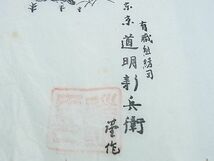 有職組紐司
東京道明新兵衛
謹作